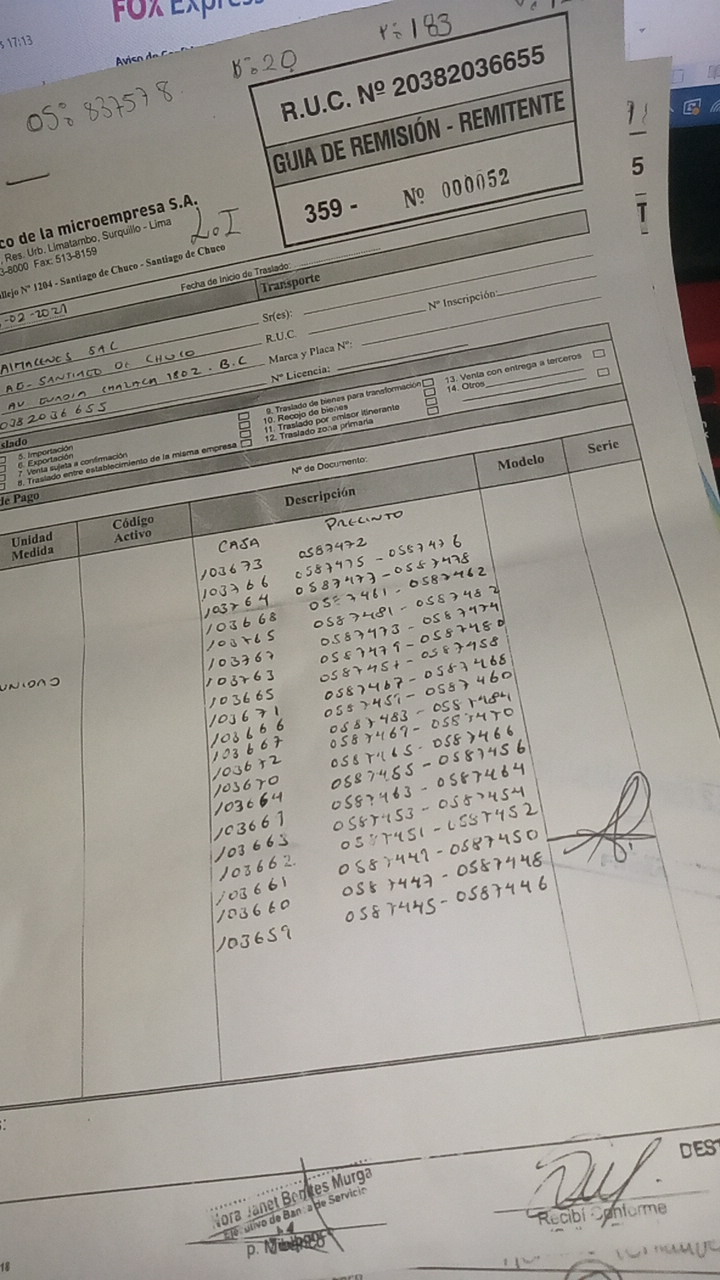 FOX Express
5 17:13
B:20
K: 183
OS: 837578
R.U.C. Nº 20382036655
GUIA DE REMISIÓN - REMITENTE
359 - Nº 000052
5
T
co de la microempresa S.A.
, Res. Urb. Limatambo, Surquillo - Lima
3-8000 Fax: 513-8159
LOI
llejo Nº 1204 - Santiago de Chuco - Santiago de Chuco
Fecha de Inicio de Traslado:
-02-2021
Transporte
ALMACENES SAC
Sr(es):
AO-SANTIAGO DE CHUCO
R.U.C.
Nº Inscripción:
1802. B.C
Marca y Placa Nº:
0382036655
Nº Licencia:
slado
5. Importación
6. Exportación
7. Venta sujeta a confirmación
8. Traslado entre establecimiento de la misma empresa
9. Traslado de bienes para transformación
10. Recojo de bienes
11. Traslado por emisor itinerante
12. Traslado zona primaria
13. Venta con entrega a terceros
14. Otros
de Pago
Nº de Documento:
Unidad Medida
Código Activo
Descripción
Modelo
Serie
CAJA PRECINTO
103673 0587472
103766 0587475-0587476
103764 0587477-0587478
103668 0587461-0587462
103765 0587481-0587482
103767 0587473-0587474
103763 0587479-0587480
103665 0587457-0587458
103671 0587467-0587468
103666 0587459-0587460
103667 0587483-0587484
103672 0587469-0587470
103670 0587465-0587466
103664 0587455-0587456
103669 0587463-0587464
103663 0587453-0587454
103662 0587451-0587452
103661 0587449-0587450
103660 0587447-0587448
103659 0587445-0587446
UNIDAD
DEST
Nora Janet Benites Murga
Ejecutivo de Banca de Servicio
Recibí Conforme
18